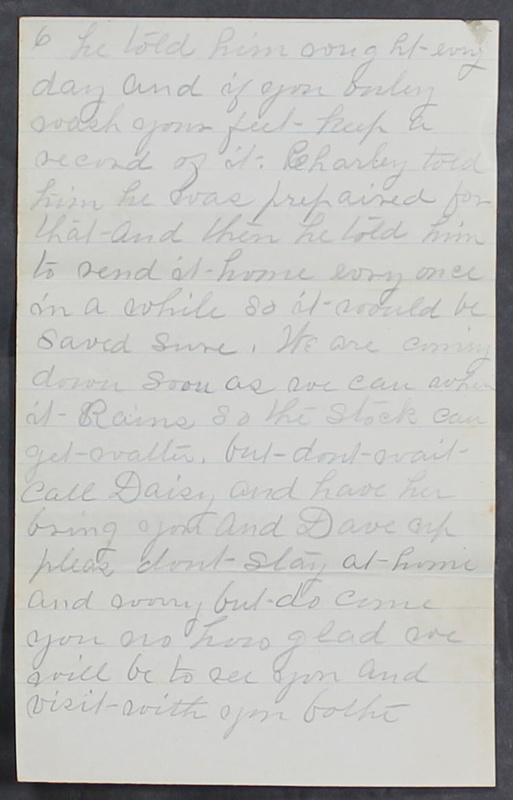 6 he told him rought evry
day and if you onley
wash your feet - keep a
record of it. Charley told
him he was prepaired for
that - and then he told him
to send it - home evry once
in a while so it - would be
Saved Sure. We are coming
down Soon as we can when
it - Rains so the Stock can
get - watter. but - dont - wait -
Call Daisy and have her
bring you and Dave up
pleas dont - Stay at - home
and worry but - do come
you no how glad we
will be to see you and
visit - with you bothe